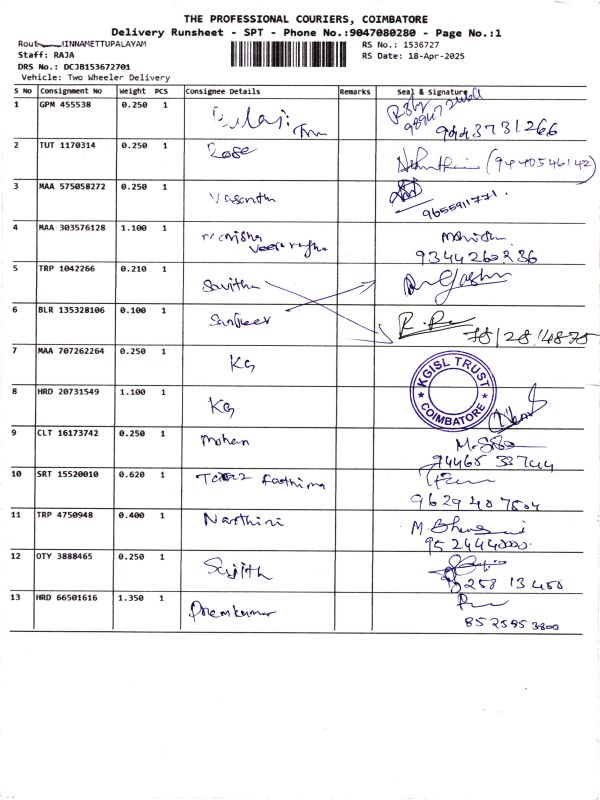 THE PROFESSIONAL COURIERS, COIMBATORE
Delivery Runsheet - SPT - Phone No.:9047080280 - Page No.:1
INNAMETTUPALAYAM
RS No.: 1536727
Staff: RAJA
RS Date: 18-Apr-2025
DRS No.: DCJB153672701
Vehicle: Two Wheeler Delivery
S No Consignment No Weight PCS Consignee Details Remarks Seal & Signature
1 GPM 455538 0.250 1 Balaji
9443731266
2 TUT 1170314 0.250 1 Rose (9440546142)
3 MAA 575058272 0.250 1 Vasantha
9655911771.
4 MAA 303576128 1.100 1 Monisha
9344260236
5 TRP 1042266 0.210 1 Savitha
6 BLR 135328106 0.100 1 Sanjeev
7 MAA 707262264 0.250 1 KG
KGISL TRUST
COIMBATORE
8 HRD 20731549 1.100 1 KG
9 CLT 16173742 0.250 1 Mohan
10 SRT 15520010 0.620 1 Fathima
9629407504
11 TRP 4750948 0.400 1 Narthini
9524440000.
12 OTY 3888465 0.250 1 Sujith
13 HRD 66501616 1.350 1 Premkumar
8525953800